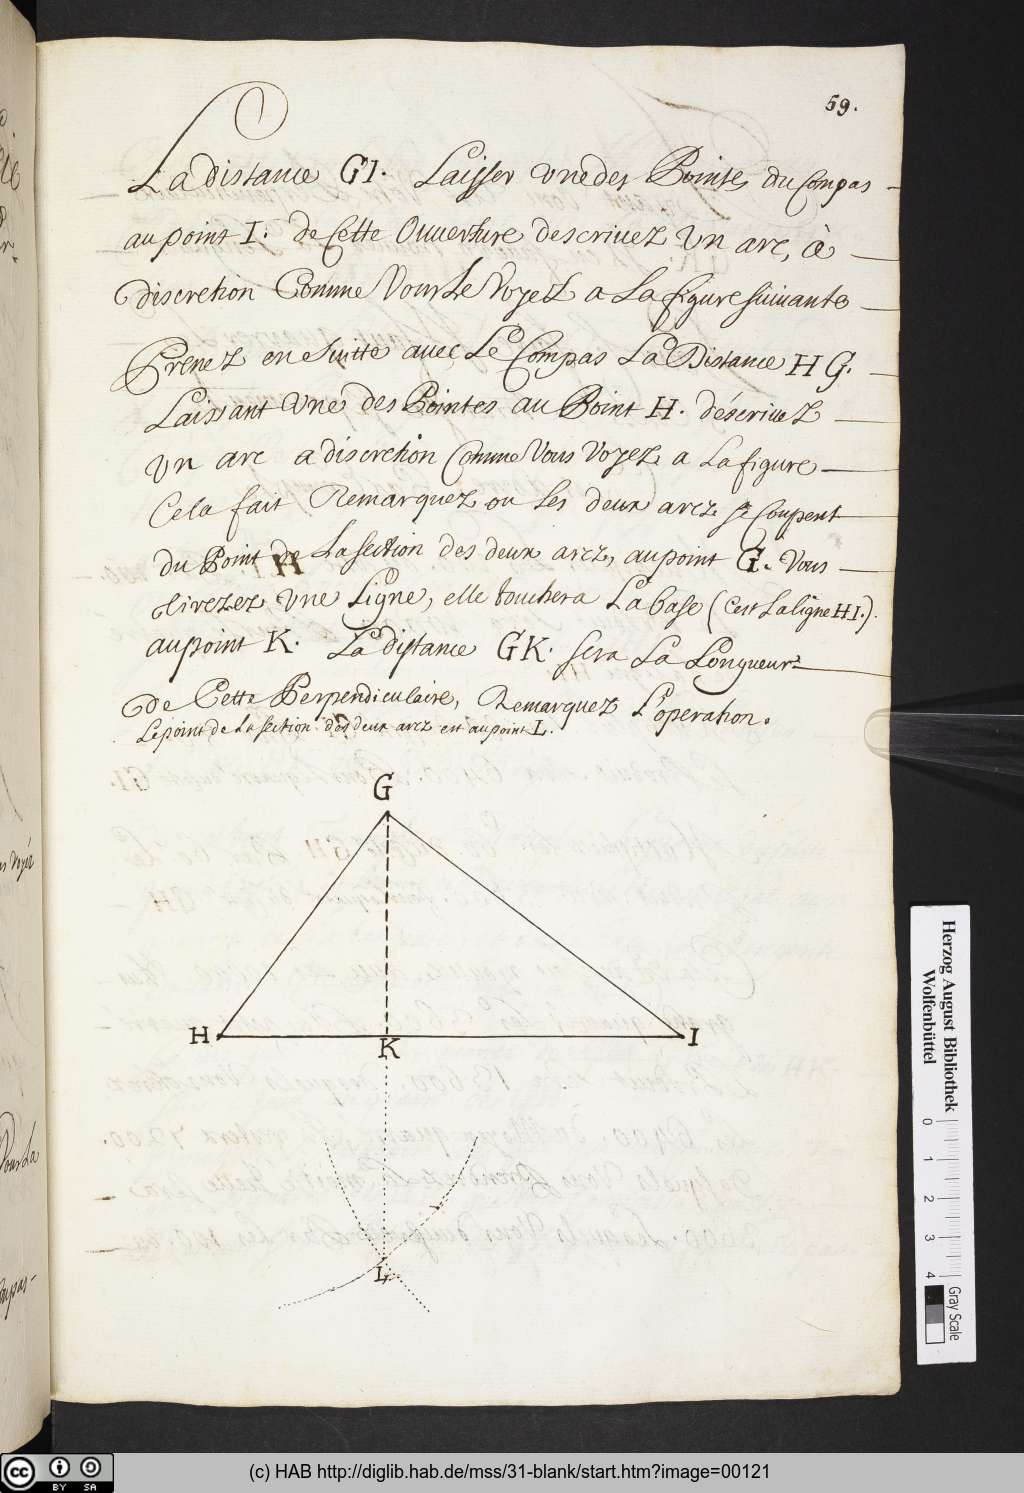 59.
La distance GI. Laisser une des Pointes du Compas
au point I. de Cette Ouuerture descriuez un arc, à
discretion Comme Vous Le Voyez a La figure suiuante
Prenez en suitte auec Le Compas La Distance HG.
Laissant une des Pointes au Point H. déscriuez
un arc a discretion Comme Vous Voyez a La figure
Cela fait Remarquez ou les deux arcz se Coupent
du Point de La section des deux arcz, au point G. Vous
H
tirezez une Ligne, elle touchera La base (C'est La ligne HI.).
au point K. La distance GK. sera La Longueur
de Cette Perpendiculaire, Remarquez L'operation.
Le point de La section des deux arcz est au point L.
G
H
K
I
L
Herzog August Bibliothek
Wolfenbüttel
0 1 2 3 4
Gray Scale
cc BY SA
(c) HAB http://diglib.hab.de/mss/31-blank/start.htm?image=00121